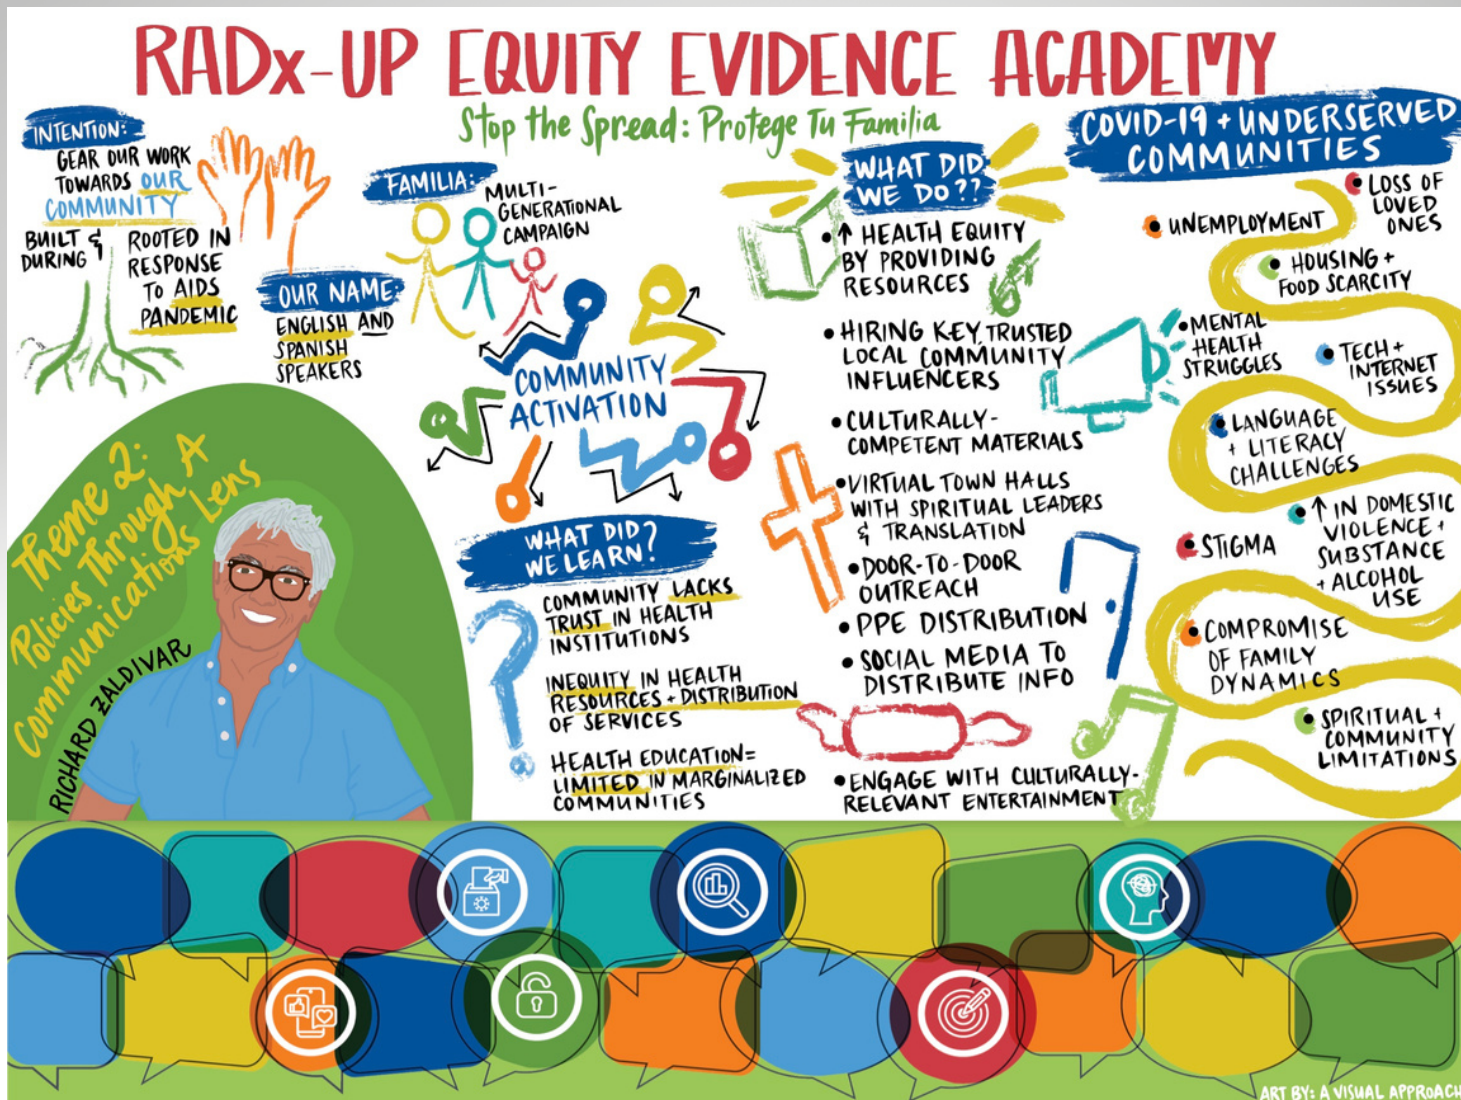 RADx-UP EQUITY EVIDENCE ACADEMY
Stop the Spread: Protege Tu Familia
INTENTION:
GEAR OUR WORK
TOWARDS OUR
COMMUNITY
BUILT &
DURING
ROOTED IN
RESPONSE
TO AIDS
PANDEMIC
OUR NAME:
ENGLISH AND
SPANISH
SPEAKERS
FAMILIA:
MULTI-
GENERATIONAL
CAMPAIGN
COMMUNITY
ACTIVATION
Theme 2:
Policies Through A
Communications Lens
RICHARD ZALDIVAR
WHAT DID
WE LEARN?
COMMUNITY LACKS
TRUST IN HEALTH
INSTITUTIONS
INEQUITY IN HEALTH
RESOURCES + DISTRIBUTION
OF SERVICES
HEALTH EDUCATION =
LIMITED IN MARGINALIZED
COMMUNITIES
WHAT DID
WE DO??
• ↑ HEALTH EQUITY
BY PROVIDING
RESOURCES
• HIRING KEY, TRUSTED
LOCAL COMMUNITY
INFLUENCERS
• CULTURALLY-
COMPETENT MATERIALS
• VIRTUAL TOWN HALLS
WITH SPIRITUAL LEADERS
& TRANSLATION
• DOOR-TO-DOOR
OUTREACH
• PPE DISTRIBUTION
• SOCIAL MEDIA TO
DISTRIBUTE INFO
• ENGAGE WITH CULTURALLY-
RELEVANT ENTERTAINMENT
COVID-19 + UNDERSERVED
COMMUNITIES
• LOSS OF
LOVED
ONES
• UNEMPLOYMENT
• HOUSING +
FOOD SCARCITY
• MENTAL
HEALTH
STRUGGLES
• TECH +
INTERNET
ISSUES
• LANGUAGE
+ LITERACY
CHALLENGES
• ↑ IN DOMESTIC
VIOLENCE +
SUBSTANCE
+ ALCOHOL
USE
• STIGMA
• COMPROMISE
OF FAMILY
DYNAMICS
• SPIRITUAL +
COMMUNITY
LIMITATIONS
ART BY: A VISUAL APPROACH